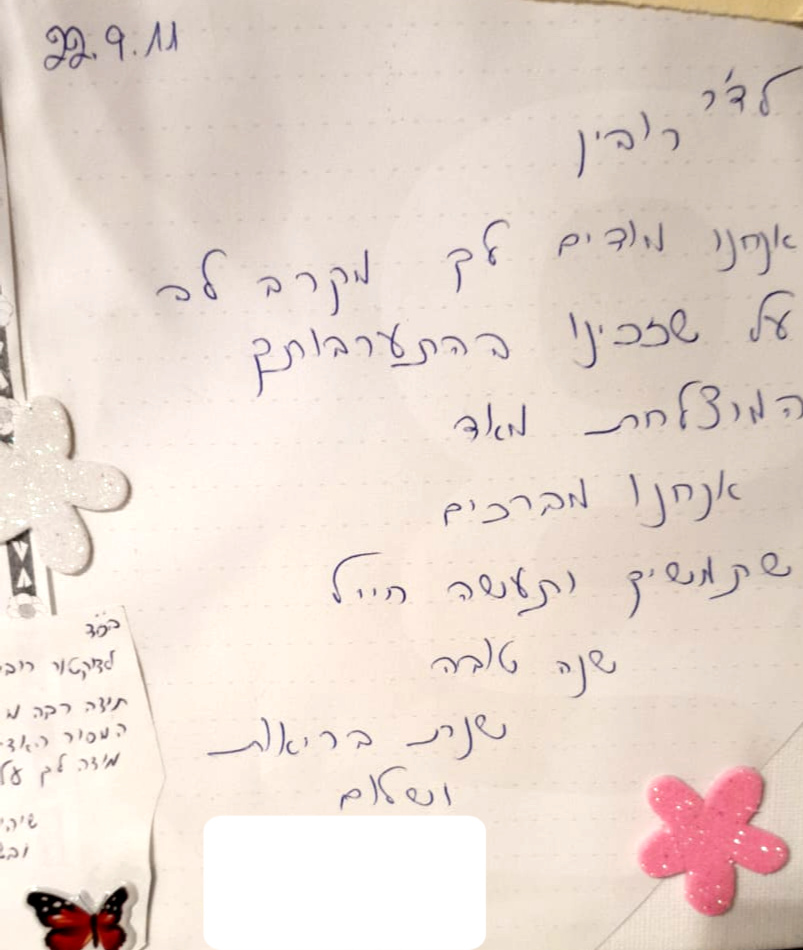 22.9.11
לד"ר
רובין
אנחנו מודים לך מקרב לב
על שזכינו בהתערבותך
המוצלחת מאד
אנחנו מברכים
שתמשיך ותעשה חייל
שנה טובה
שנת בריאות
ושלום
בס"ד
לדוקטור רוב
תודה רבה מ
המסור האד
מודה לך על
שיהי